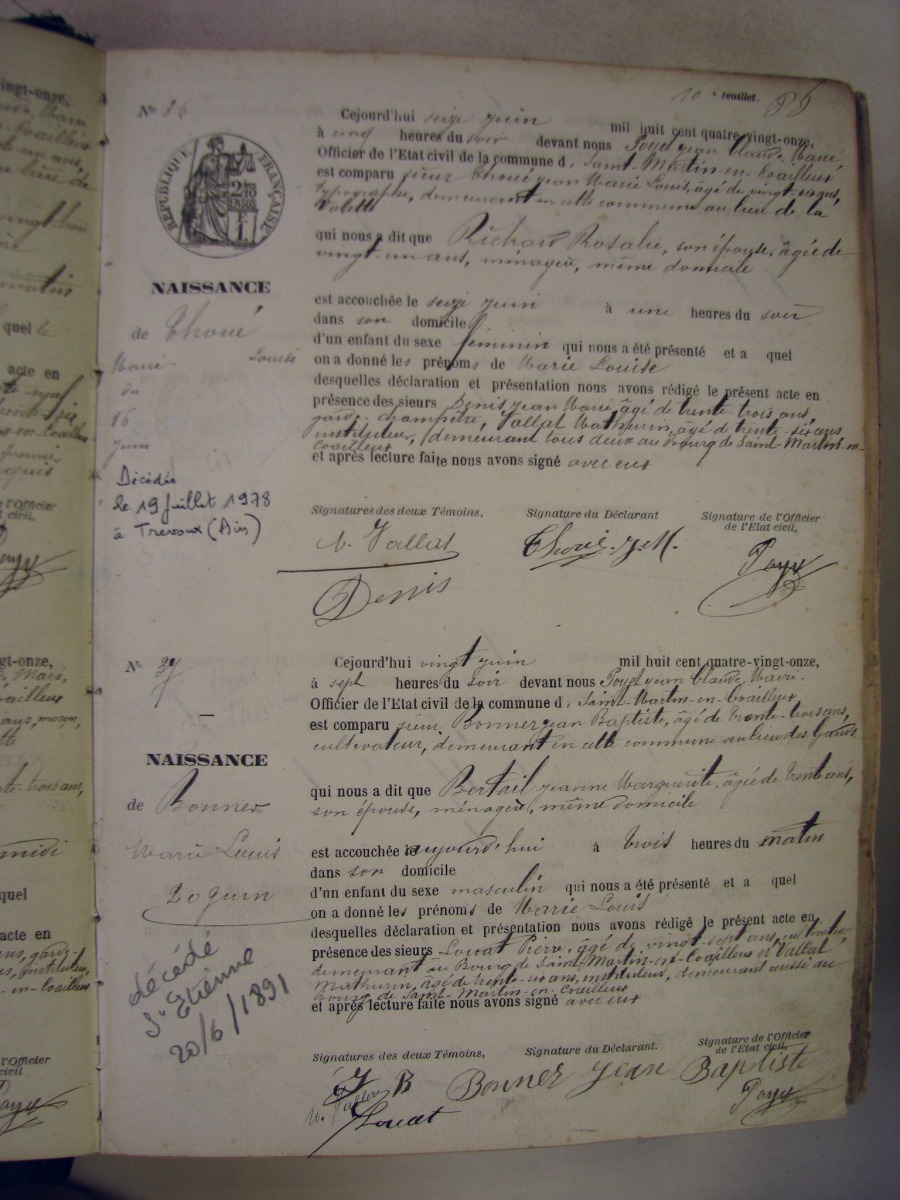 10e feuillet. 85
N° 36
RÉPUBLIQUE FRANÇAISE
NAISSANCE
de Thoué
Marie Louise
du
16
Juin
Décédée
le 19 Juillet 1978
à Trévoux (Ain)
Cejourd'hui seize juin mil huit cent quatre-vingt-onze,
à cinq heures du soir devant nous Poyet jean Claude, Maire
Officier de l'Etat civil de la commune de Saint-Martin-en-Coailleux
est comparu sieur Thoué jean Marie Louis, âgé de vingt-six ans,
typographe, demeurant en cette commune au lieu de la
Valette
qui nous a dit que Richard Rosalie, son épouse, âgée de
vingt-un ans, ménagère, même domicile
est accouchée le seize juin à une heures du soir
dans son domicile
d'un enfant du sexe féminin qui nous a été présenté et a quel
on a donné les prénoms de Marie Louise
desquelles déclaration et présentation nous avons rédigé le présent acte en
présence des sieurs Denis jean Marie, âgé de trente-trois ans,
garde-champêtre, Vallat Mathurin, âgé de trente-six ans
instituteur, demeurant tous deux au bourg de Saint-Martin-en-
Coailleux
et après lecture faite nous avons signé avec eux
Signatures des deux Témoins, Signature du Déclarant Signature de l'Officier
de l'Etat civil,
M. Vallat Thoué J. M. Poyet
Denis
N° 37
NAISSANCE
de Bonner
Marie Louis
décédé
St Etienne
20/6/1891
Cejourd'hui vingt juin mil huit cent quatre-vingt-onze,
à sept heures du soir devant nous Poyet jean Claude, Maire.
Officier de l'Etat civil de la commune de Saint-Martin-en-Coailleux
est comparu sieur Bonner jean Baptiste, âgé de trente-trois ans,
cultivateur, demeurant en cette commune au lieu des
qui nous a dit que Bertail jeanne Marguerite, âgée de trente ans,
son épouse, ménagère, même domicile
est accouchée aujourd'hui à trois heures du matin
dans son domicile
d'un enfant du sexe masculin qui nous a été présenté et a quel
on a donné les prénoms de Marie Louis
desquelles déclaration et présentation nous avons rédigé le présent acte en
présence des sieurs Louat Pierre, âgé de vingt-sept ans,
demeurant au Bourg de Saint-Martin-en-Coailleux et Vallat
Mathurin, âgé de trente-six ans, instituteur, demeurant aussi au
bourg de Saint-Martin-en-Coailleux
et après lecture faite nous avons signé avec eux
Signatures des deux Témoins, Signature du Déclarant. Signature de l'Officier
de l'Etat civil,
J B Bonner Jean Baptiste
M. Vallat Poyet
Louat